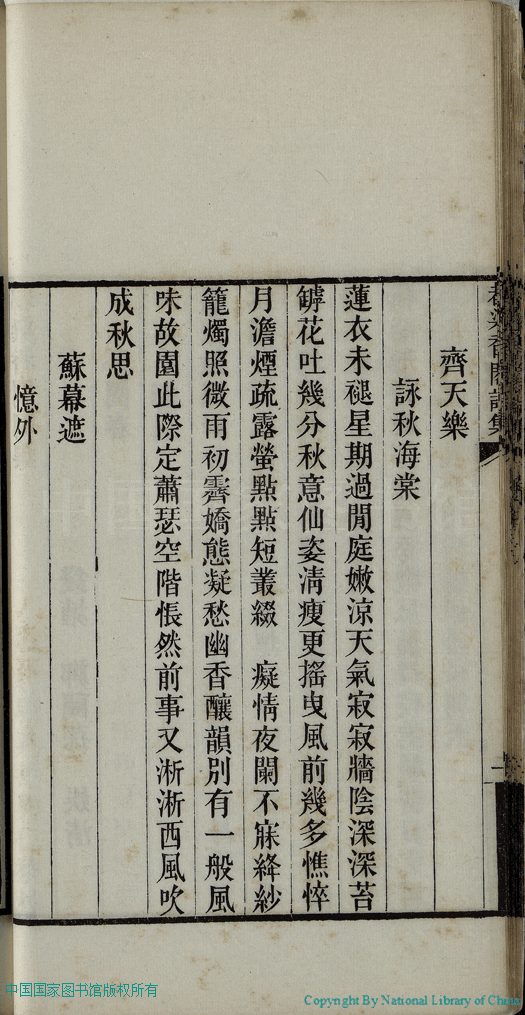 齊天樂
詠秋海棠
蓮衣未褪星期過閒庭嫩涼天氣寂寂牆陰深深苔
罅花吐幾分秋意仙姿淸瘦更搖曳風前幾多憔悴
月澹煙疏露螢點點短叢綴　癡情夜闌不寐絳紗
籠燭照微雨初霽嬌態凝愁幽香釀韻別有一般風
味故園此際定蕭瑟空階悵然前事又淅淅西風吹
成秋思
蘇幕遮
憶外
中国国家图书馆版权所有
Copyright By National Library of China